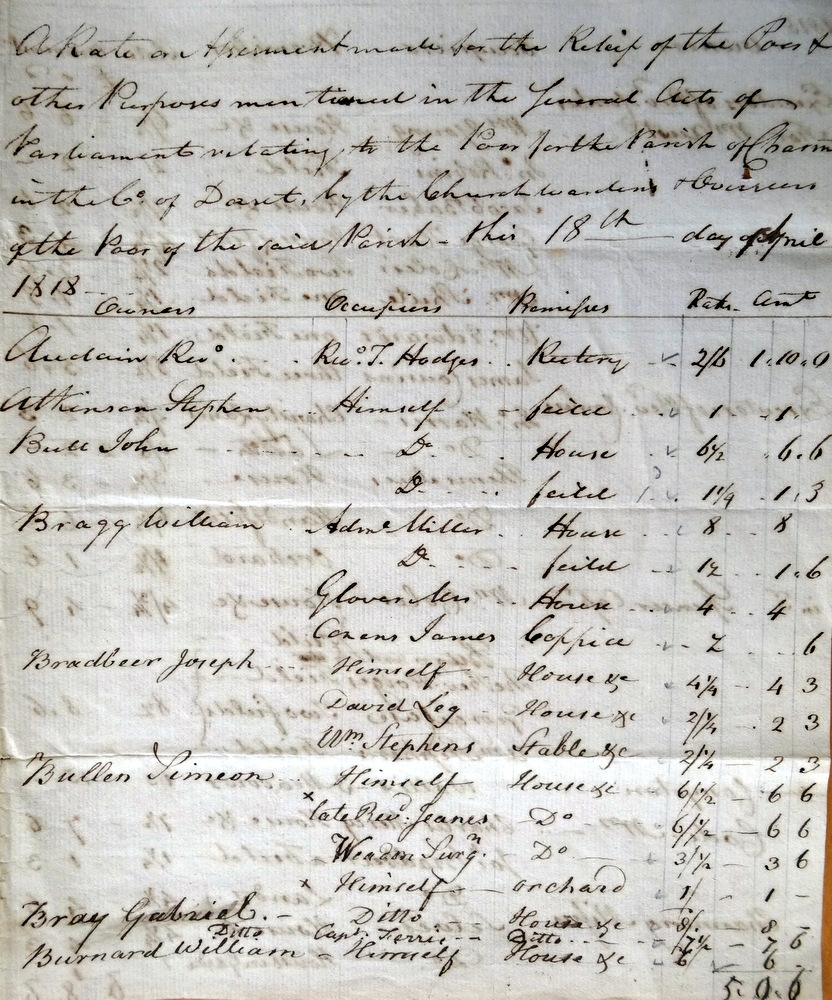 A Rate or Assessment made for the Releif of the Poor &
other Purposes mentioned in the Several Acts of
Parliament relating to the Poor for the Parish of Charm
in the Co. of Dorset, by the Churchwardens & Overseers
of the Poor of the said Parish - this 18th day of April
1818
Owners Occupiers Premises Rate Amt
Audain Revd. Revd. T. Hodges Rectory 2/6 1.10.0
Atkinson Stephen Himself feild 1 1
Bull John Do House 6½ 6.6
Do feild 1¼ 1.3
Bragg William Adml Miller House 8 8
Do feild 1½ 1.6
Glover Mrs House 4 4
Cozens James Coppice ½ 6
Bradbeer Joseph Himself House &c 4¼ 4 3
David Leg House &c 2/¼ 2 3
Wm Stephens Stable &c 2/¼ 2 3
Bullen Simeon Himself House &c 6/½ 6 6
x late Revd. Jeanes Do 6/½ 6 6
Weadon Surgn. Do 3/½ 3 6
x Himself orchard 1/ 1 -
Bray Gabriel. Ditto House &c 8/. 8 -
Ditto Capt. Ferris Ditto 7½ 7 6
Burnard William Himself House &c 6 6 -
5.0.6